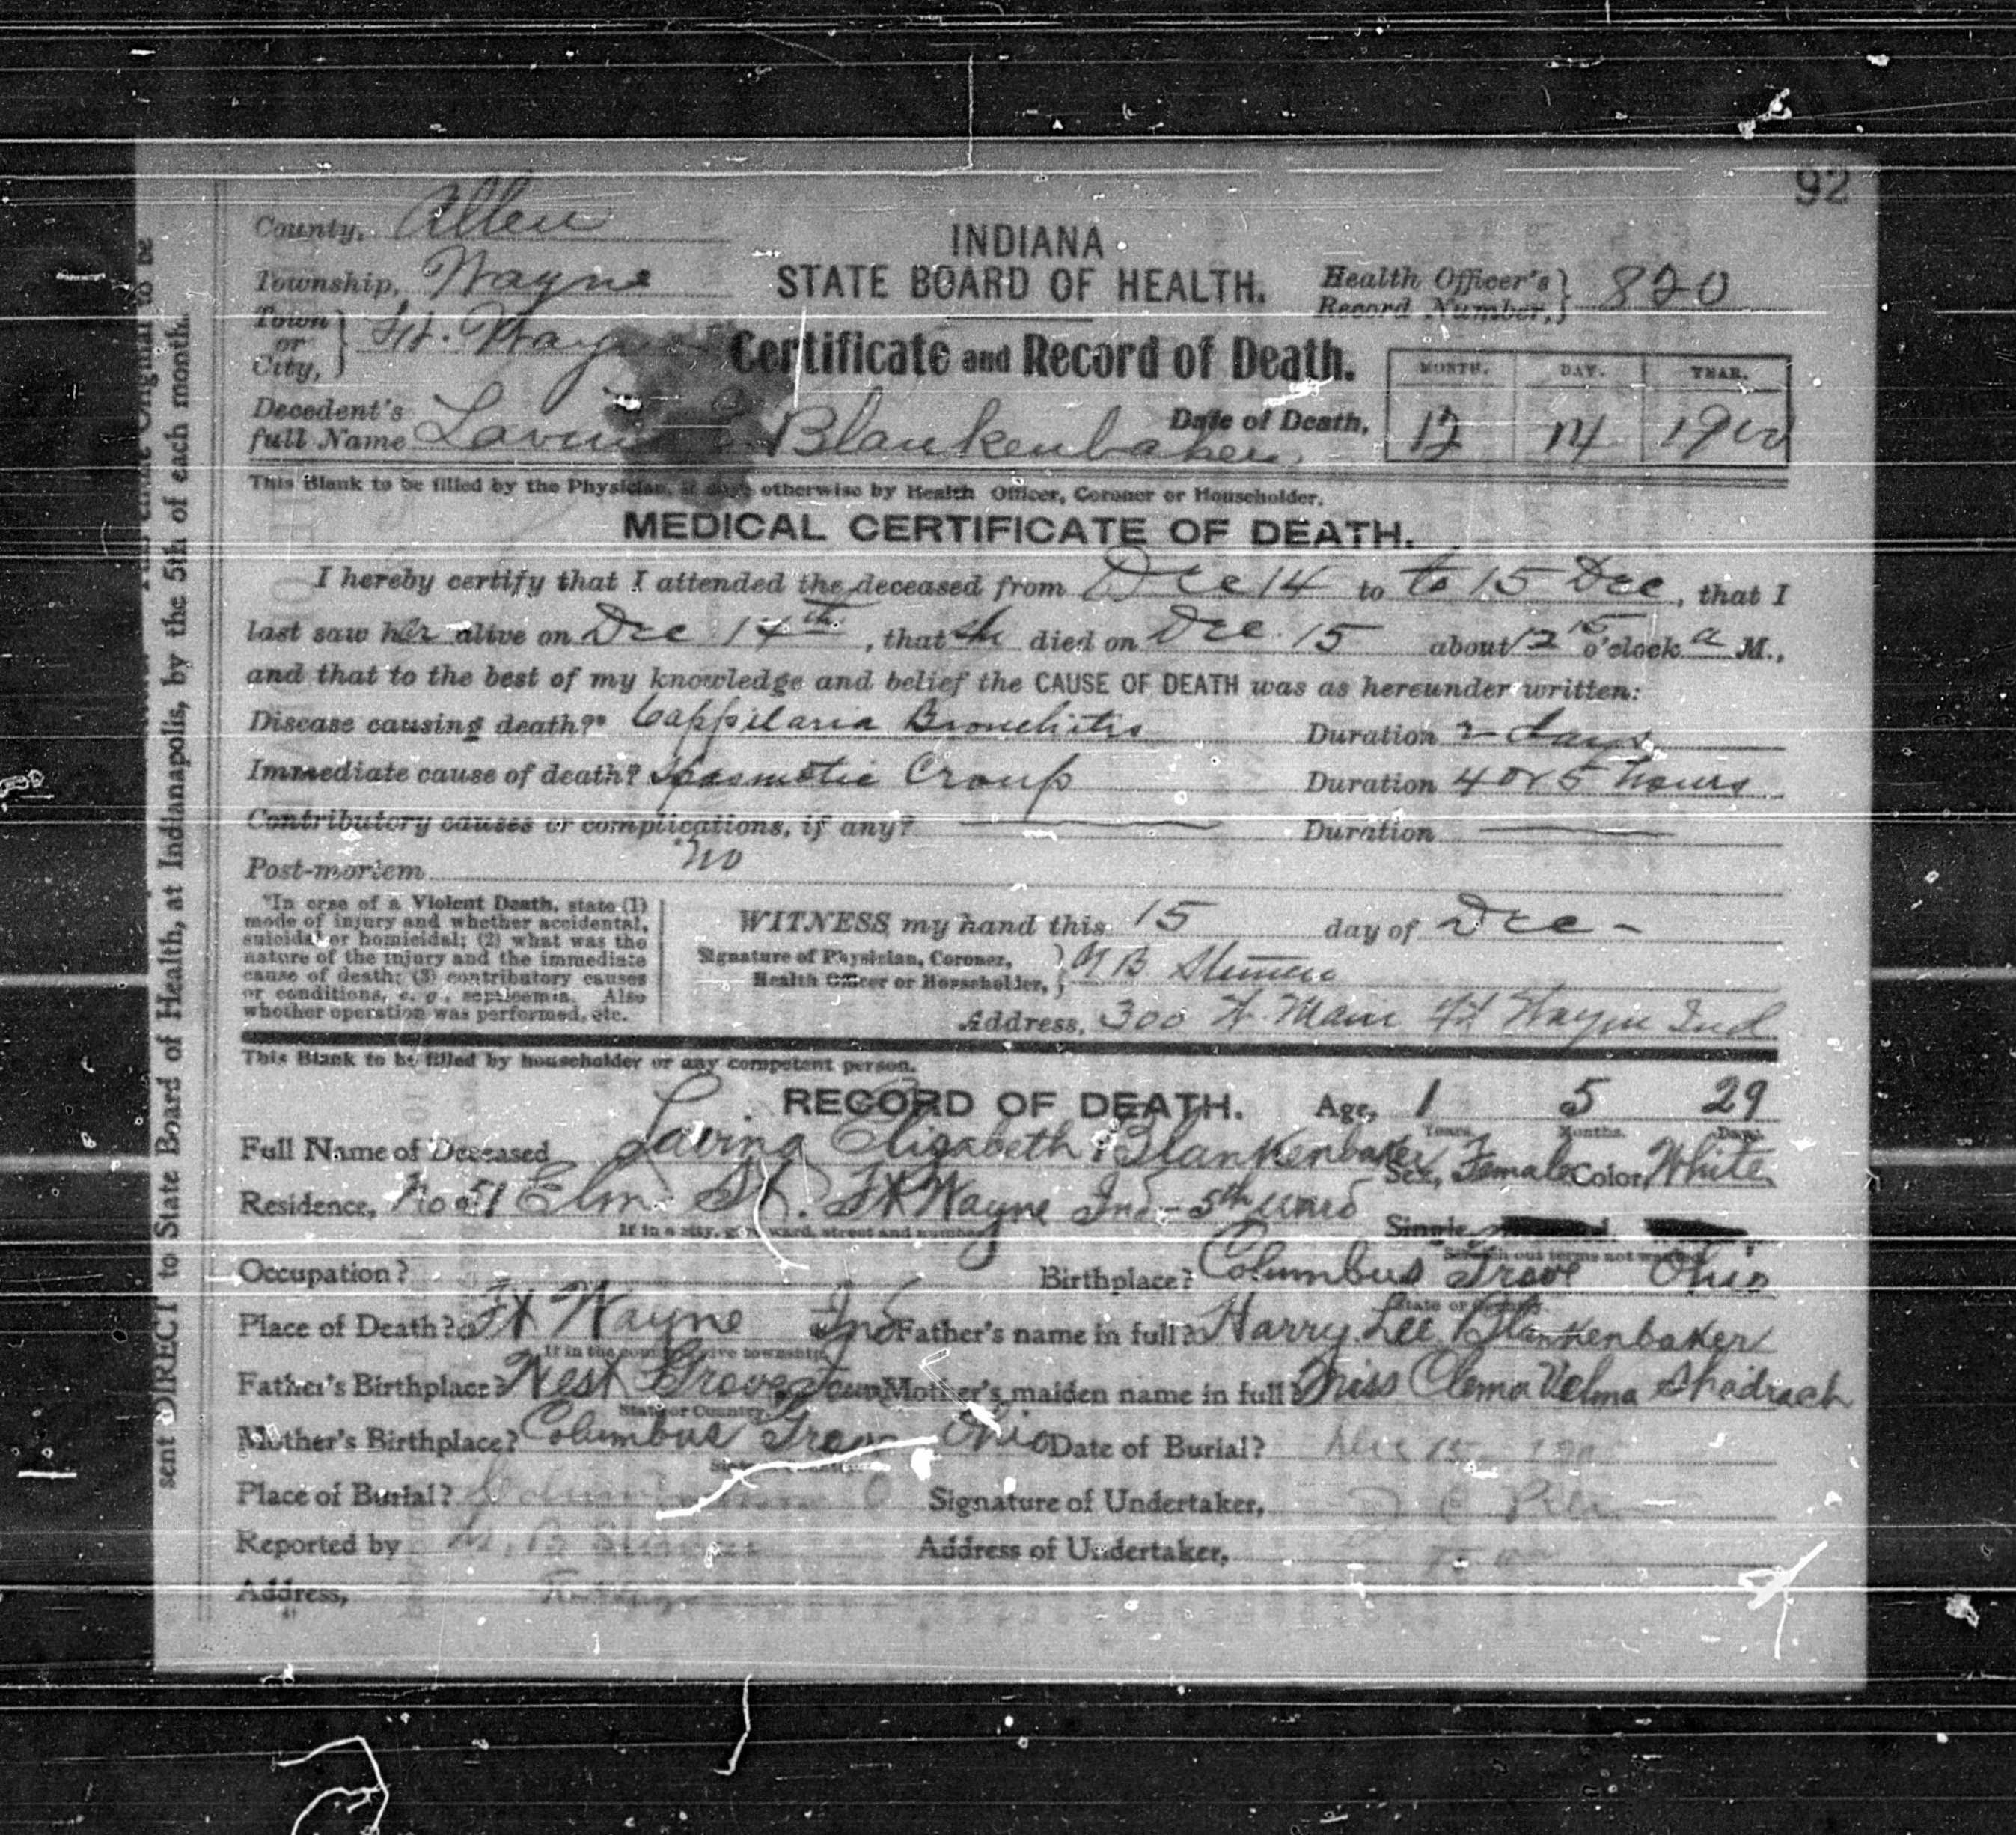 92
County, Allen
Township, Wayne
Town or City, Ft. Wayne
INDIANA
STATE BOARD OF HEALTH.
Health Officer's Record Number, 820
Certificate and Record of Death.
MONTH. DAY. YEAR.
Decedent's full Name Blankenbaker,
Date of Death, 12 14 1900
This Blank to be filled by the Physician, if any; otherwise by Health Officer, Coroner or Householder.
MEDICAL CERTIFICATE OF DEATH.
I hereby certify that I attended the deceased from Dec 14 to to 15 Dec, that I
last saw her alive on Dec 14th, that she died on Dec. 15 about 12 15 o'clock a M.,
and that to the best of my knowledge and belief the CAUSE OF DEATH was as hereunder written:
Disease causing death?* Cappilaria Bronchitis Duration 2 days
Immediate cause of death? Spasmotic Croup Duration 4 or 5 hours
Contributory causes or complications, if any? Duration
Post-mortem no
*In case of a Violent Death, state (1)
mode of injury and whether accidental,
suicidal or homicidal; (2) what was the
nature of the injury and the immediate
cause of death; (3) contributory causes
or conditions, e. g., septicemia. Also
whether operation was performed, etc.
WITNESS my hand this 15 day of Dec -
Signature of Physician, Coroner,
Health Officer or Householder, B
Address, 300 W. Main Ft Wayne Ind
This Blank to be filled by householder or any competent person.
RECORD OF DEATH. Age, 1 5 29
Years. Months. Days.
Full Name of Deceased Lavina Elizabeth Blankenbaker Sex, Female Color, White
Residence, No 51 Elm St. Ft Wayne Ind - 5th ward Single,
If in a city, give ward, street and number
Scratch out terms not wanted
Occupation? Birthplace? Columbus Grove Ohio
State or Country
Place of Death? Ft Wayne Ind Father's name in full? Harry Lee Blankenbaker
If in the country give township
Father's Birthplace? West Grove Mother's maiden name in full? Miss Clema Velma Shadrach
State or Country
Mother's Birthplace? Columbus Grove Ohio Date of Burial? Dec 15
Place of Burial? Signature of Undertaker,
Reported by B Address of Undertaker,
Address,
sent DIRECT to State Board of Health, at Indianapolis, by the 5th of each month.